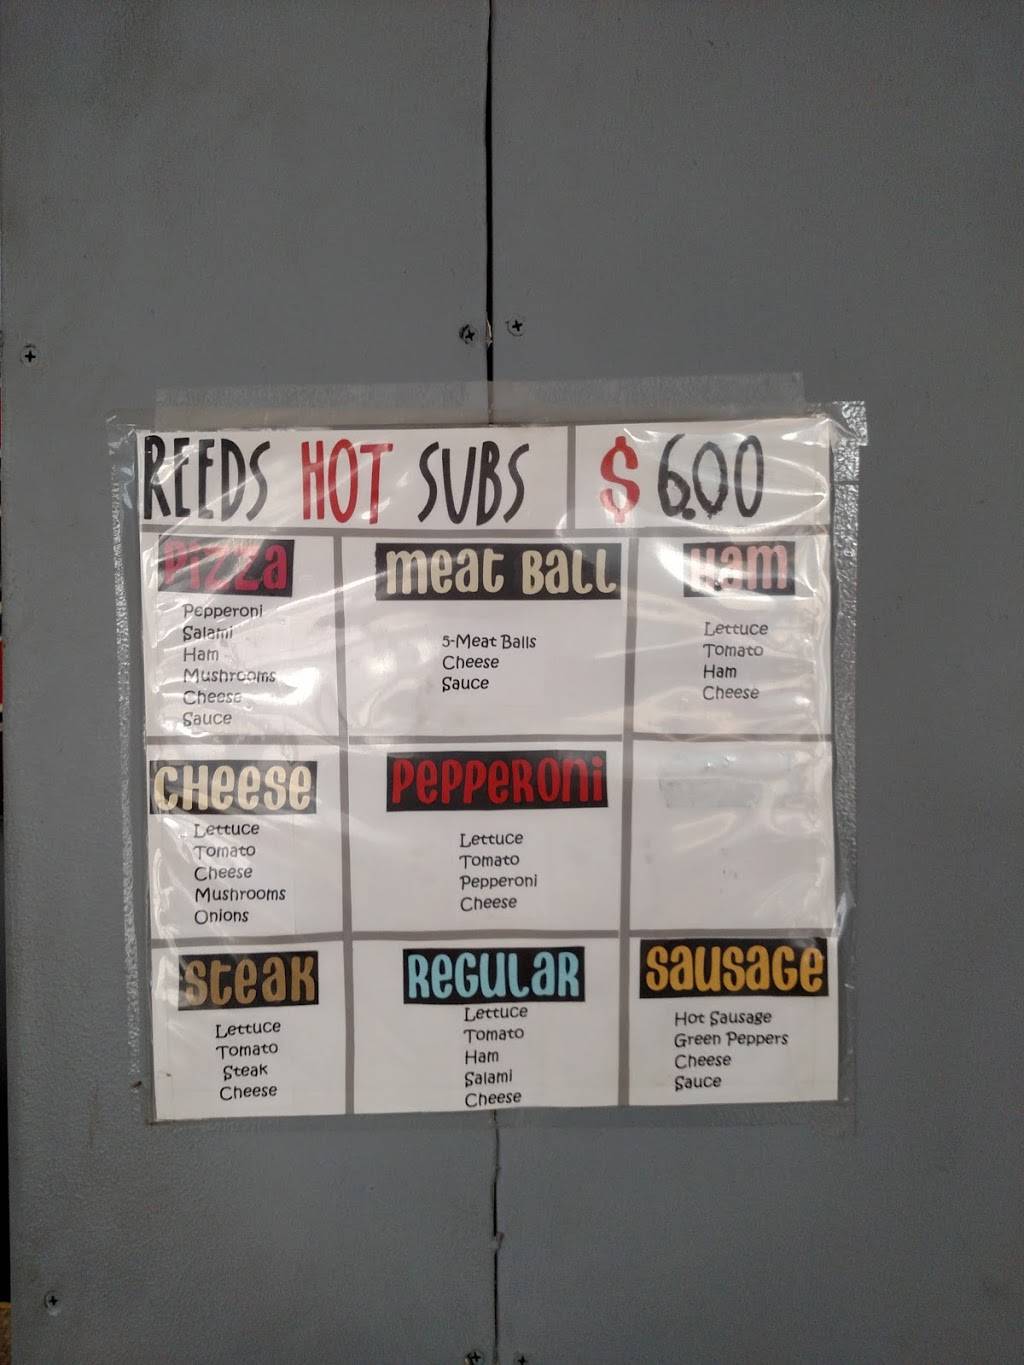 REEDS HOT SUBS $ 6.00
Pizza
Pepperoni
Salami
Ham
Mushrooms
Cheese
Sauce
Meat Ball
5-Meat Balls
Cheese
Sauce
Ham
Lettuce
Tomato
Ham
Cheese
Cheese
Lettuce
Tomato
Cheese
Mushrooms
Onions
Pepperoni
Lettuce
Tomato
Pepperoni
Cheese
Steak
Lettuce
Tomato
Steak
Cheese
Regular
Lettuce
Tomato
Ham
Salami
Cheese
Sausage
Hot Sausage
Green Peppers
Cheese
Sauce